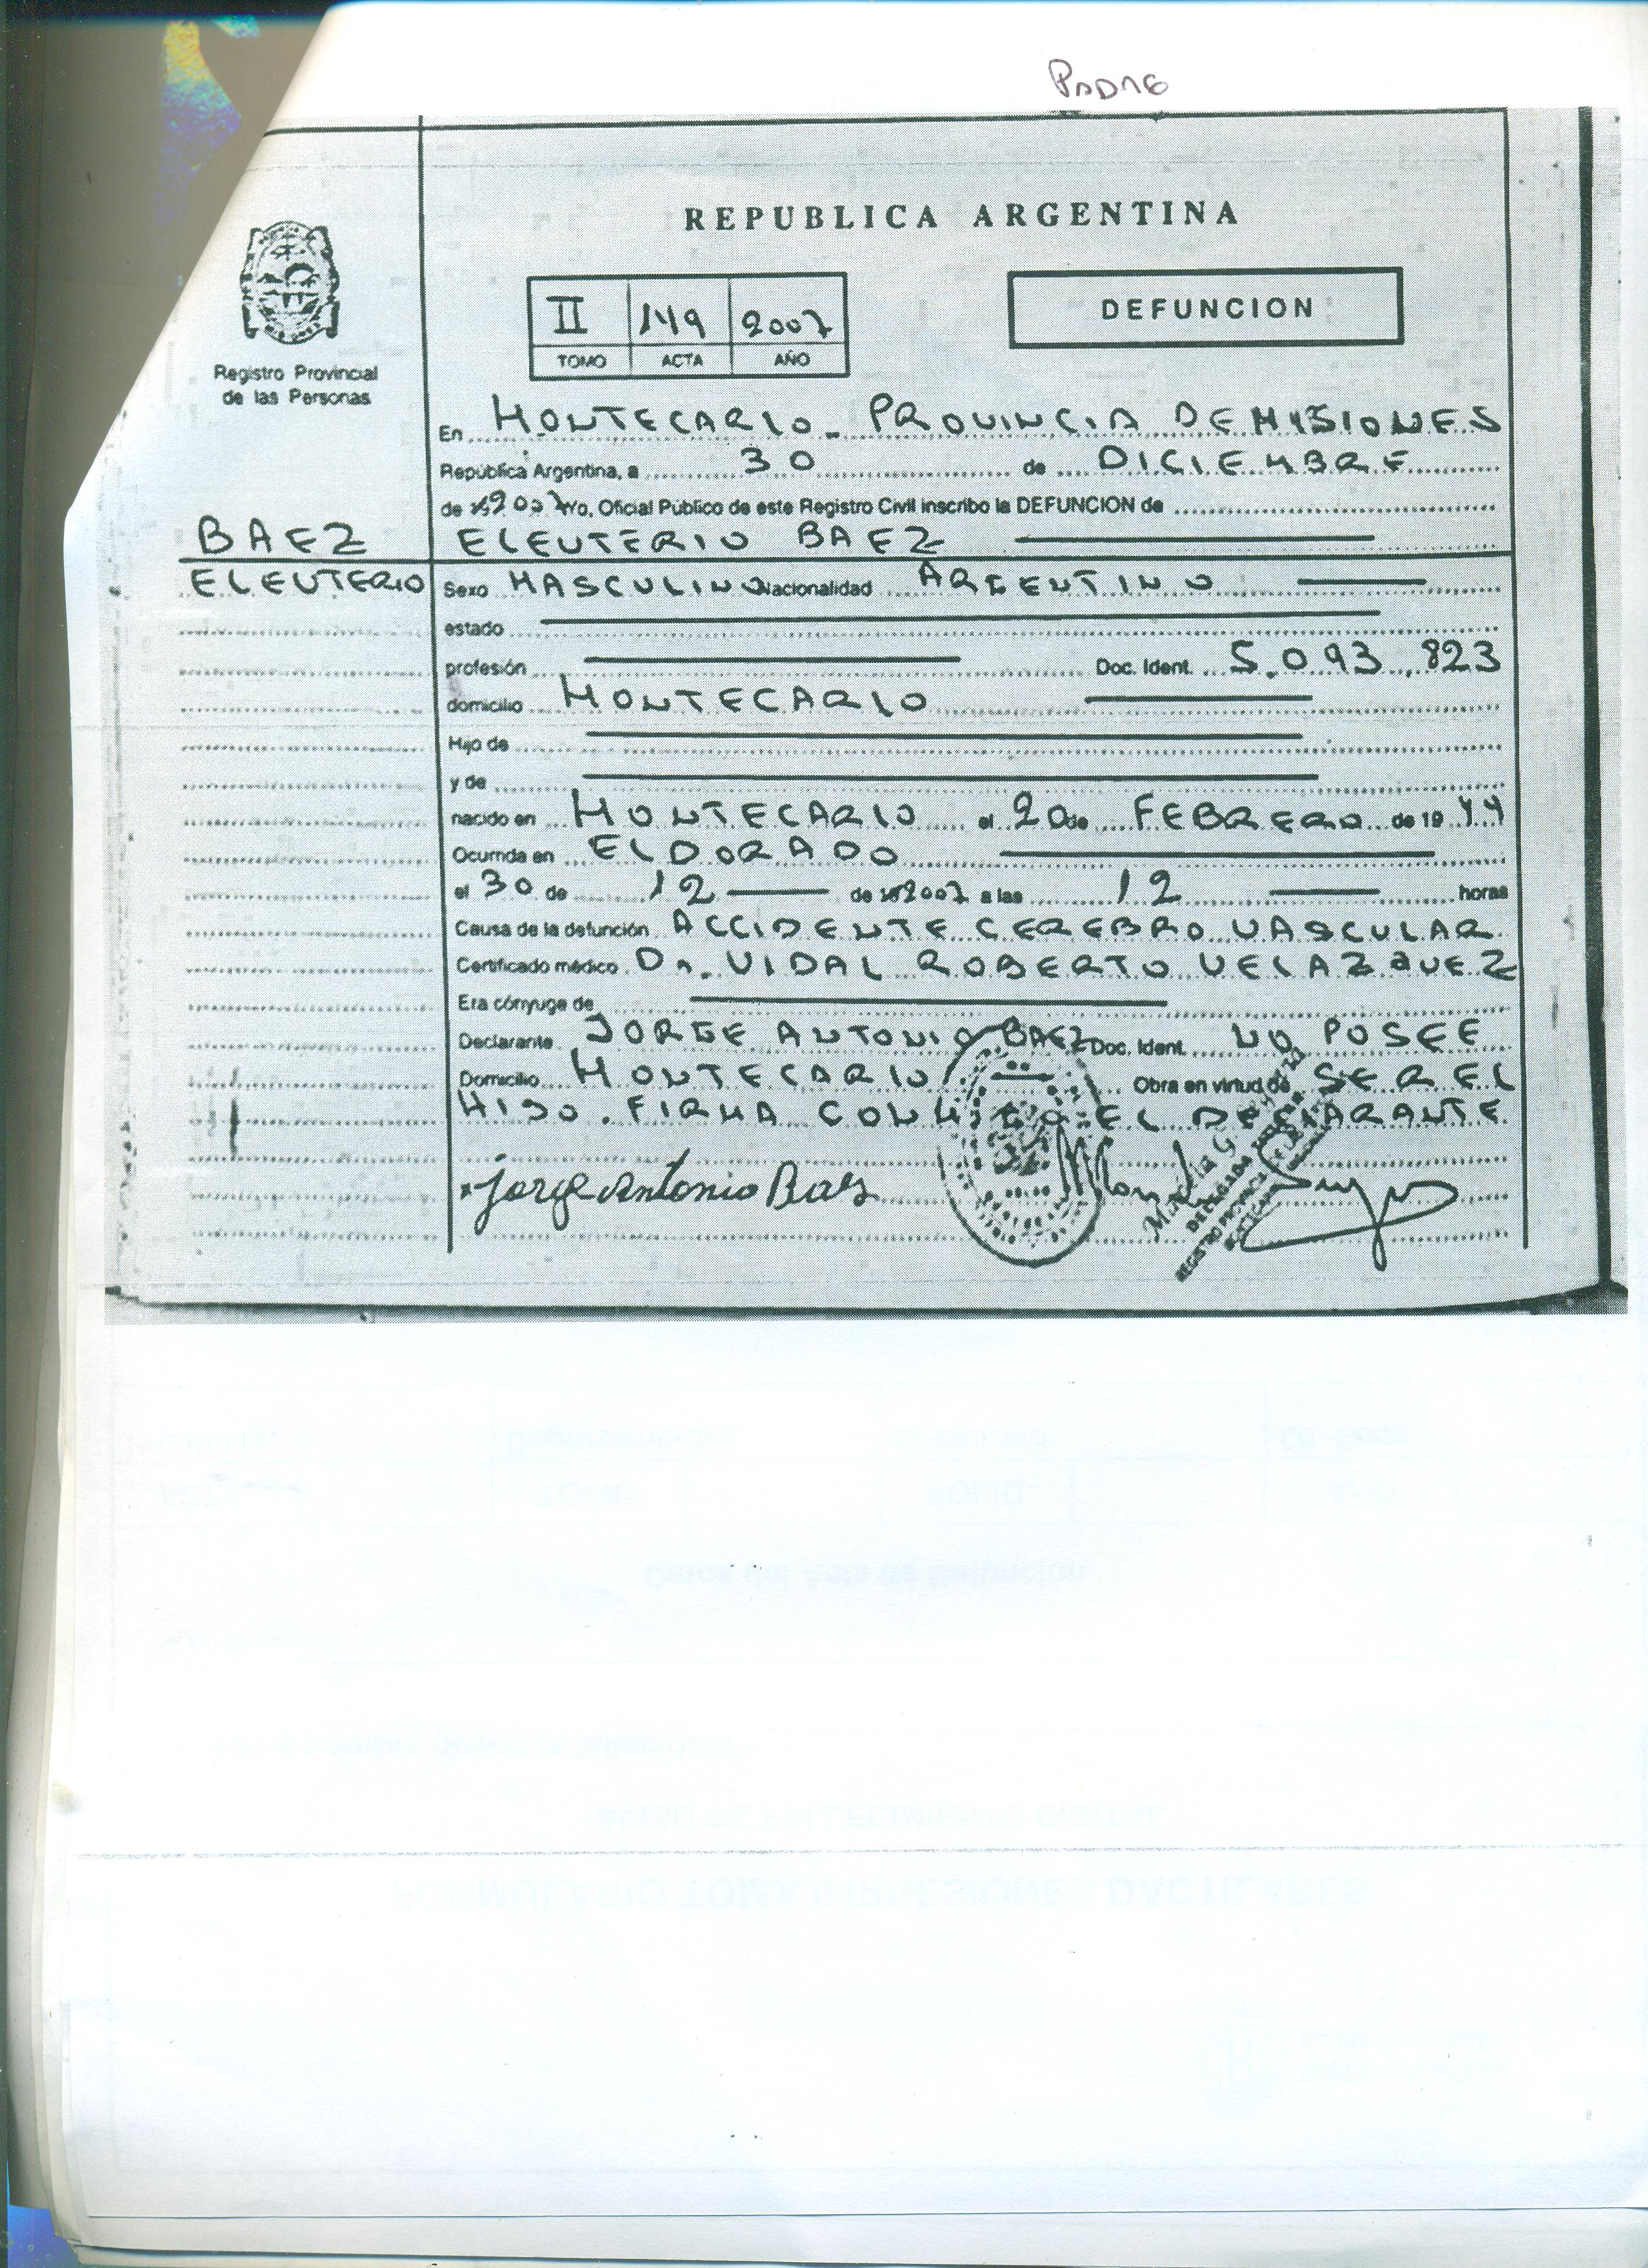 PADRE
REPUBLICA ARGENTINA
II 149 2007
TOMO ACTA AÑO
DEFUNCION
Registro Provincial
de las Personas
En MONTECARLO - PROVINCIA DE MISIONES
República Argentina, a 30 de DICIEMBRE
de 2007 Yo, Oficial Público de este Registro Civil inscribo la DEFUNCION de
BAEZ ELEUTERIO BAEZ
ELEUTERIO Sexo MASCULINO Nacionalidad ARGENTINO
estado
profesión Doc. Ident. 5.093.823
domicilio MONTECARLO
Hijo de
y de
nacido en MONTECARLO el 20 de FEBRERO de 1944
Ocurrida en ELDORADO
el 30 de 12 de 2007 a las 12 horas
Causa de la defunción ACCIDENTE CEREBRO VASCULAR
Certificado médico Dr. VIDAL ROBERTO VELAZQUEZ
Era cónyuge de
Declarante JORGE ANTONIO BAEZ Doc. Ident. NO POSEE
Domicilio MONTECARLO Obra en virtud de SER EL
HIJO. FIRMA CONMIGO EL DECLARANTE
Jorge Antonio Baes
DELEGADA
REGISTRO PROVINCIAL
Datos del Acta de Defunción
AVISO DE FALLECIMIENTO DIGITAL
FORMULARIO TOMA IMPRESIONES DACTILARES